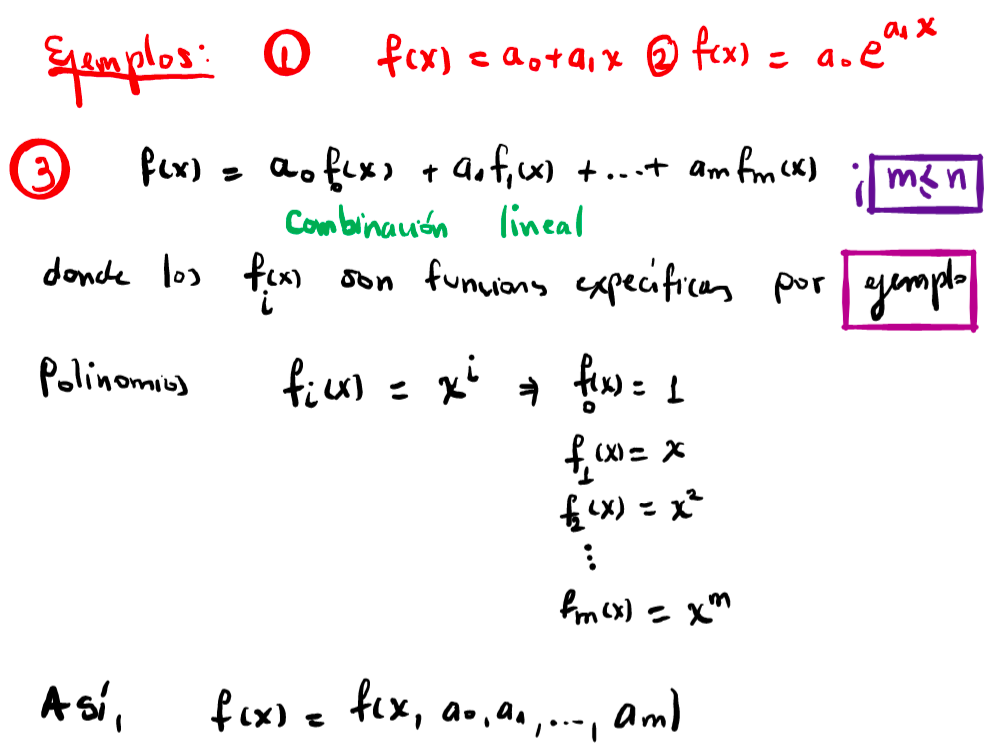 Ejemplos: ① f(x) = a₀+a₁x ② f(x) = a₀e^{a₁x}
③ f(x) = a₀f₀(x) + a₁f₁(x) + ... + amfm(x) ; m≤n
Combinación lineal
donde los fᵢ(x) son funcions expecíficas por ejemplo
Polinomios fᵢ(x) = xⁱ ⇒ f₀(x) = 1
f₁(x) = x
f₂(x) = x²
⋮
fm(x) = x^m
Así, f(x) = f(x, a₀, a₁, ..., am)